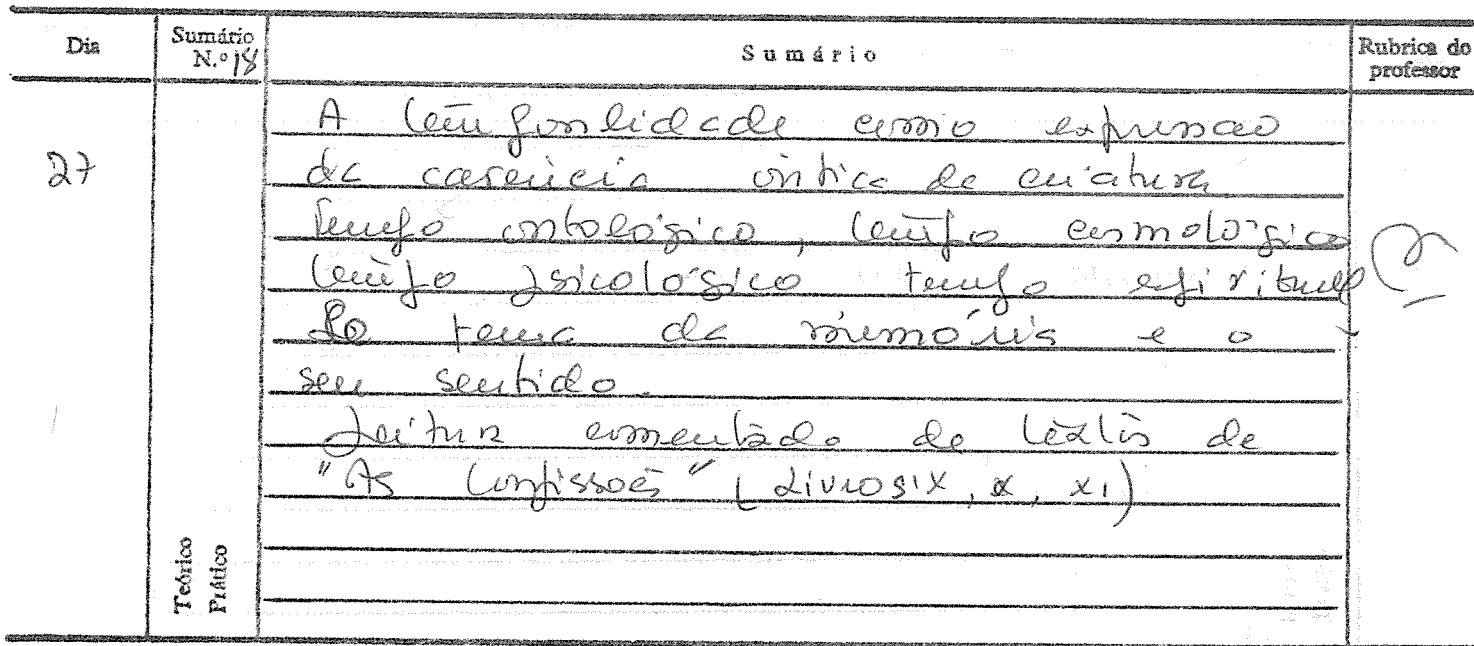 Dia
Sumário N.º 18
Sumário
Rubrica do professor
27
A temporalidade como expressão
da carência ôntica de criatura
Tempo ontológico, tempo cosmológico
tempo psicológico tempo espiritual
tema da memória e o
seu sentido.
Leitura comentada de textos de
"As Confissões" (Livros IX, X, XI)
Teórico
Prático